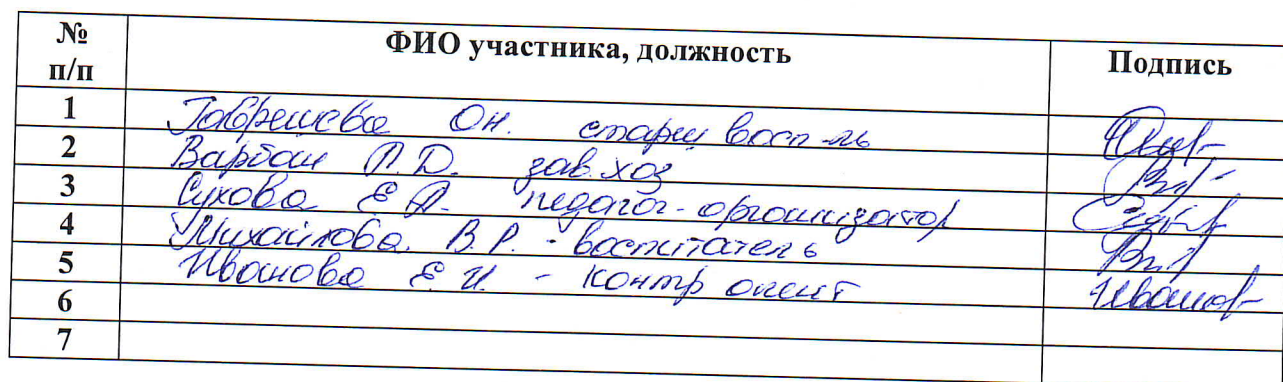 № п/п ФИО участника, должность Подпись
1 Гаврешева О.Н. старш восп-ль
2 Варбан П.Д. зав.хоз
3 Сухова Е.А. педагог-организатор
4 Михайлова. В.Р. - воспитатель
5 Иванова Е.И. - контр
6
7